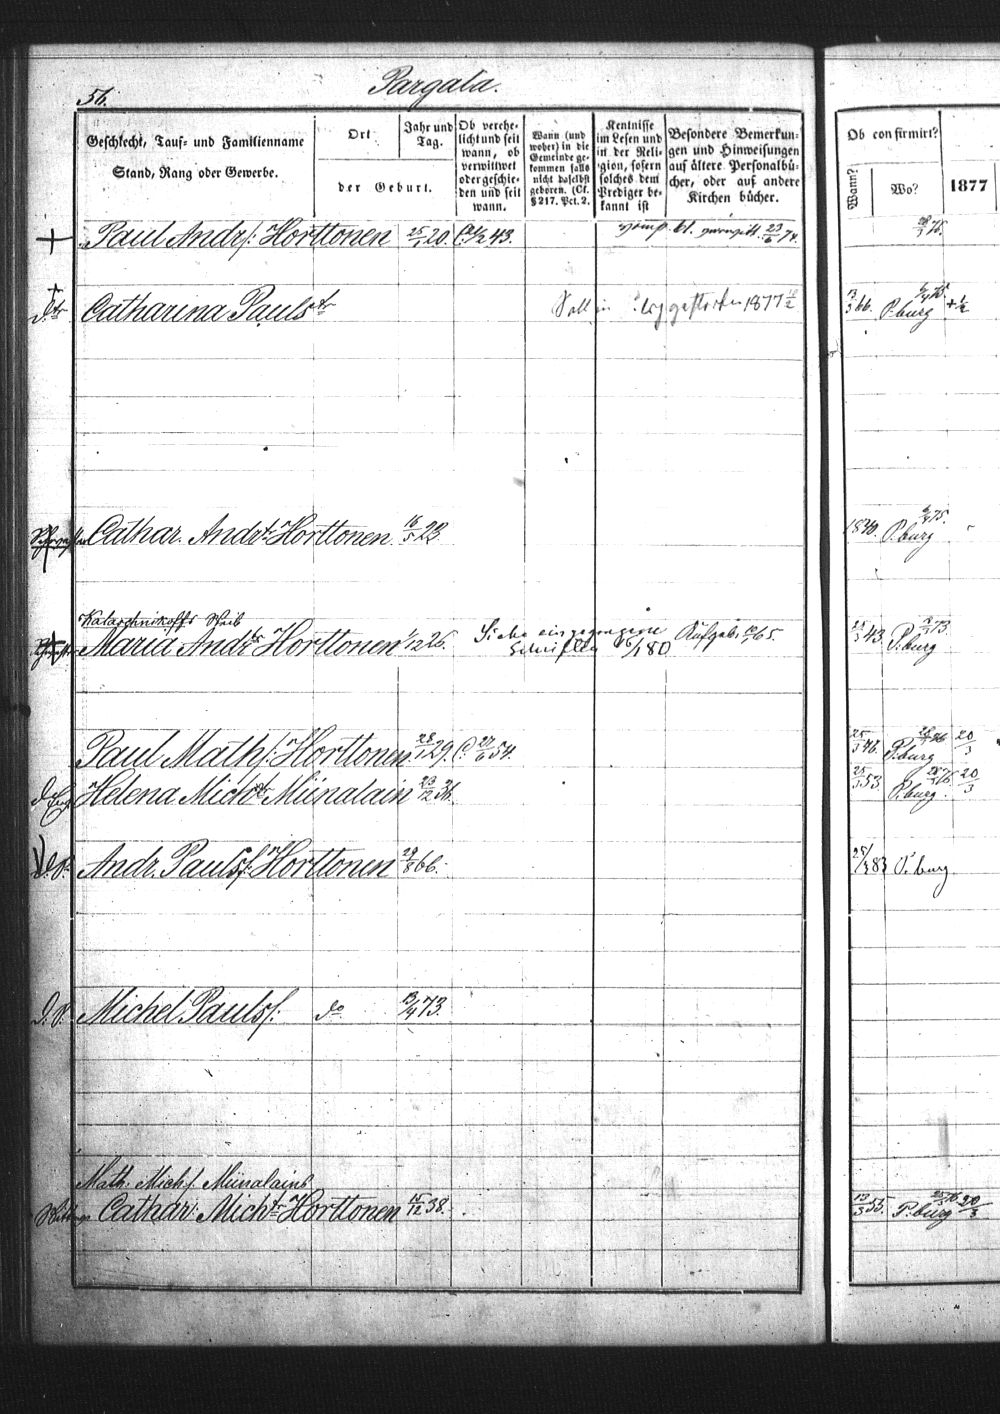 56.
Pargala.
Geschlecht, Tauf- und Familienname
Stand, Rang oder Gewerbe.
Ort
Jahr und Tag.
der Geburt.
Ob verehe-
licht und seit
wann, ob
verwittwet
oder geschie-
den und seit
wann.
Wann (und
woher) in die
Gemeinde ge-
kommen falls
nicht daselbst
geboren. (Cf.
§ 217. Pct. 2.
Kentnisse
im Lesen und
in der Reli-
gion, sofern
solches dem
Prediger be-
kannt ist
Besondere Bemerkun-
gen und Hinweisungen
auf ältere Personalbü-
cher, oder auf andere
Kirchen bücher.
Ob confirmirt?
Wann?
Wo?
1877
Paul Andr s: Horttonen 25/1 20. 43. 23/6 74.
Catharina Pauls tr Soll in gestorben 1877 P.burg
Cathar. Andr tr Horttonen 16/5 23. 1840. P.burg
Kalaschnikoffs Weib
Maria Andr tr Horttonen 1/12 26. Siehe eingegangene Aufgabe 65. 43. P.burg
Schriften 180
Paul Math s: Horttonen 28/1 29. C. 27/6 54. 25/3 46. P.burg 20/3
Helena Mich tr Miinalain 23/12 36. 25/3 53. P.burg. 20/3
d. S. Andr. Pauls s: Horttonen 29/8 66. 83 P.burg
d. S. Michel Pauls s: do 73.
Math. Mich s. Miinalains
Wittwe Cathar. Mich tr Horttonen 15/12 38. 13/3 55. P.burg 20/3